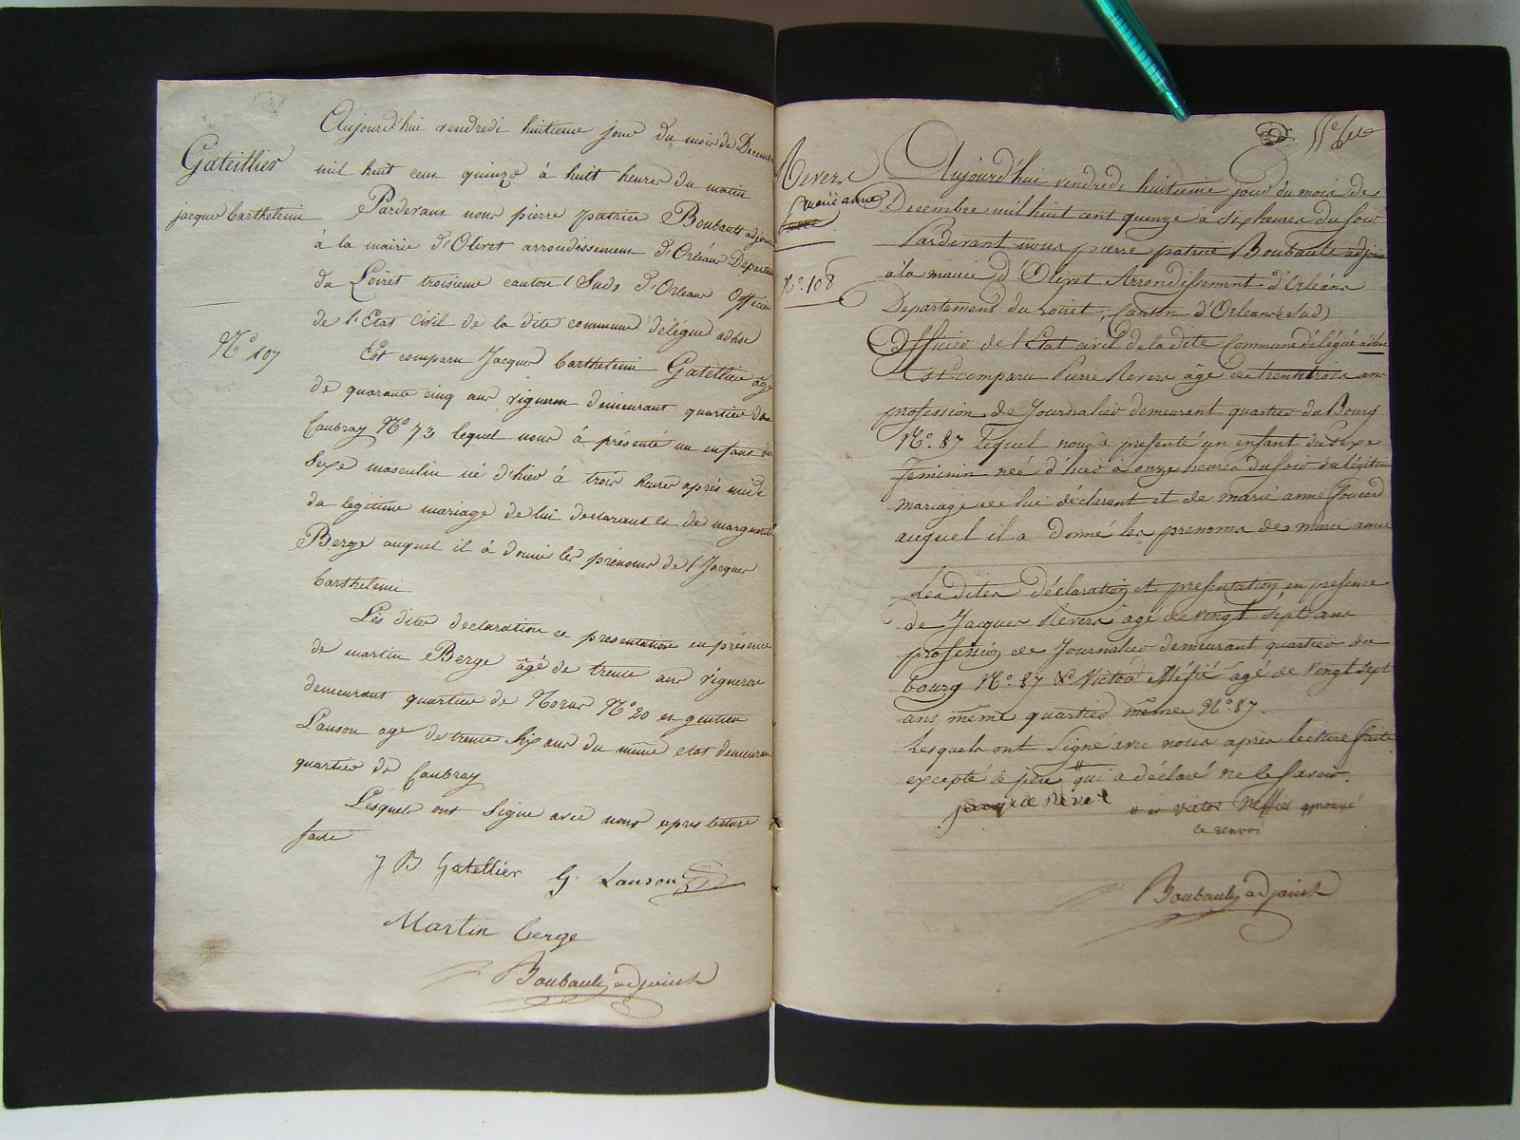 Gatellier
jacque barthelemi
N° 107
Aujourd'hui vendredi huitieme jour du mois de Decembre
mil huit cent quinze à huit heures du matin
Pardevant nous pierre patrice Boubault adjoint
à la mairie d'Olivet arrondissement d'Orléans Departement
du Loiret troisieme canton (Sud) d'Orleans Officier
de l'Etat civil de la dite commune délégué adhoc
Est comparu Jacque barthelemi Gatellier âgé
de quarante cinq ans vigneron demeurant quartier de
Caubray N° 73 lequel nous à présenté un enfant du
Sexe masculin né d'hier à trois heures après midi
du legitime mariage de lui declarant et de marguerite
Berge auquel il à donné les prénoms de Jacque
barthelemi
Les dites declaration et presentation en présence
de martin Berge âgé de trente ans vigneron
demeurant quartier de N° 20 et
Lanson age de trente Six ans du même etat demeurant
quartier de Caubray
Lesquels ont Signe avec nous apres lecture
faite
J B Gatellier G. Lanson
Martin berge
Boubault adjoint
Revers
marie anne
N°. 108
Aujourd'hui vendredi huitieme jour du mois de
Decembre mil huit cent quinze à six heures du soir
Pardevant nous pierre patrice Boubault adjoint
à la mairie d'Olivet Arrondissement d'Orléans
Departement du Loiret, Canton d'Orleans (Sud)
Officier de l'Etat civil de la dite Commune délégué adhoc
Est comparu Pierre Revers âgé de trente trois ans
profession de Journalier demeurant quartier du Bourg
N°. 87 lequel nous à presenté un enfant du Sexe
feminin née d'hier à onze heures du soir du légitime
mariage de lui déclarant et de marie anne
auquel il a Donné les prenoms de marie anne
Les dites déclaration et presentation en presence
de Jacques Revers âgé de vingt sept ans
profession de Journalier demeurant quartier du
bourg N°. 87 & Victor Meffié âgé de vingt sept
ans même quartier même N°. 87.
Lesquels ont Signé avec nous après lecture faite
excepté le pere qui a déclaré ne le savoir.
jacque Revers victor Meffié approuvé
le renvoi
Boubault adjoint